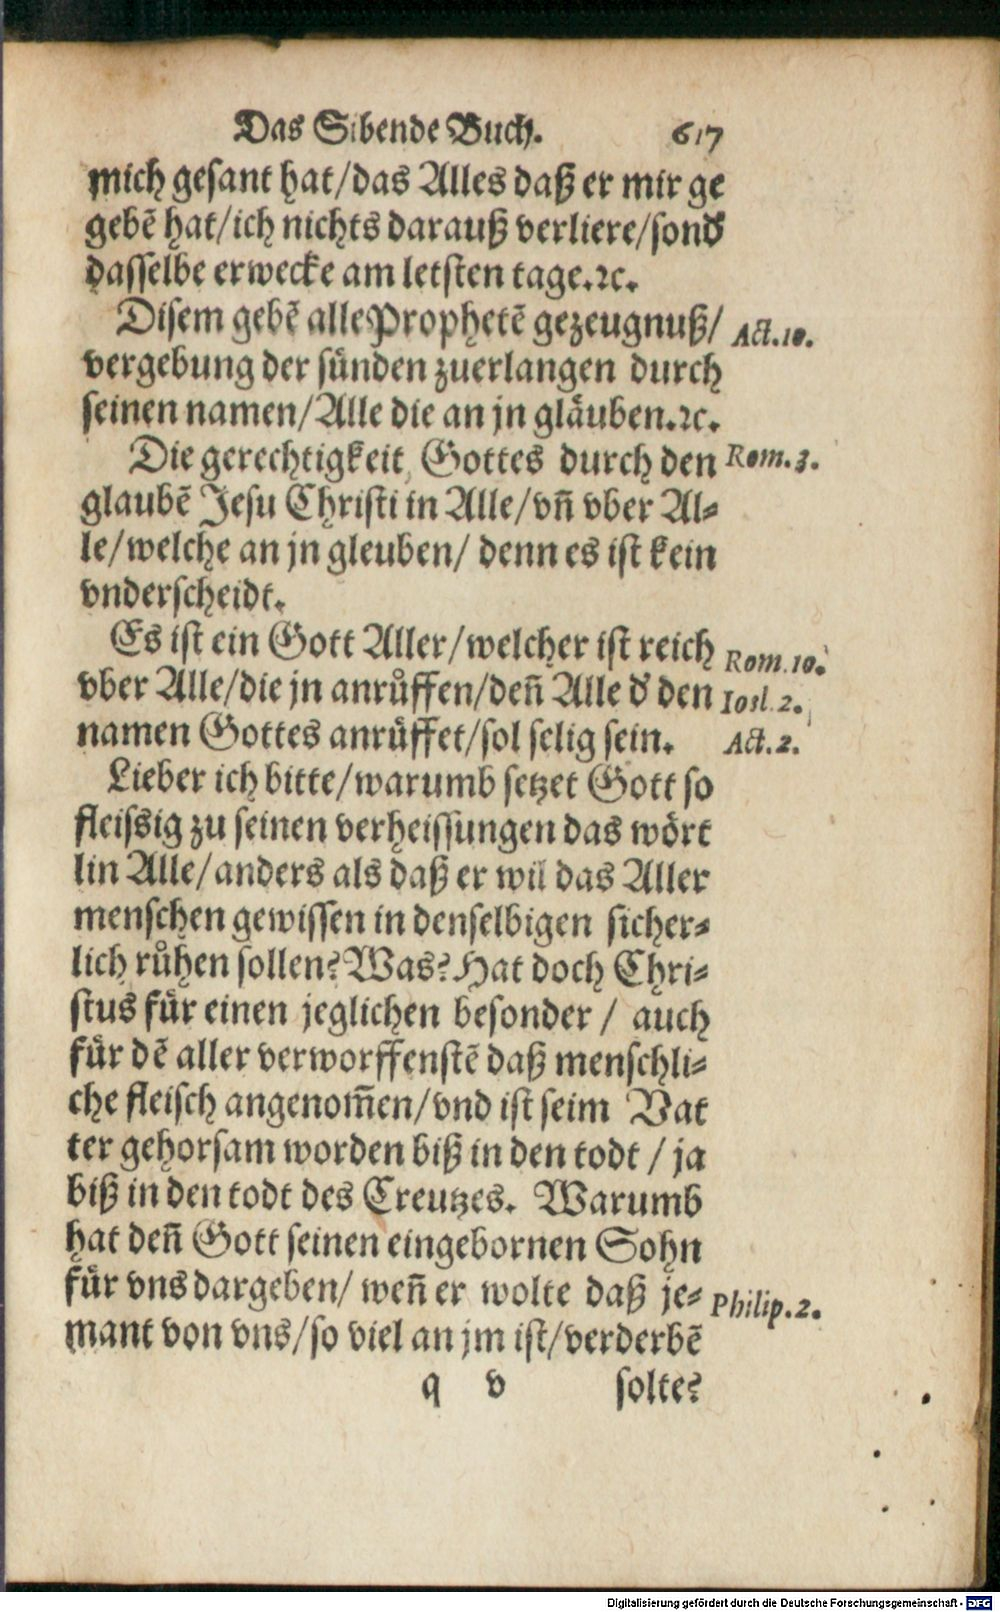 Das Sibende Buch. 617
mich gesant hat/das Alles daß er mir ge
gebẽ hat/ich nichts darauß verliere/sond'
dasselbe erwecke am letsten tage.ꝛc.
Disem gebẽ alle Prophetẽ gezeugnuß/ Act.10.
vergebung der sünden zuerlangen durch
seinen namen/Alle die an jn gläuben.ꝛc.
Die gerechtigkeit Gottes durch den Rom.3.
glaubẽ Jesu Christi in Alle/vñ vber Al⸗
le/welche an jn gleuben/ denn es ist kein
vnderscheidt.
Es ist ein Gott Aller/welcher ist reich Rom.10.
vber Alle/die jn anrůffen/deñ Alle d' den Ioel.2.
namen Gottes anrůffet/sol selig sein. Act.2.
Lieber ich bitte/warumb setzet Gott so
fleissig zu seinen verheissungen das wört
lin Alle/anders als daß er wil das Aller
menschen gewissen in denselbigen sicher⸗
lich růhen sollen? Was? Hat doch Chri⸗
stus für einen jeglichen besonder / auch
für dẽ aller verworffenstẽ daß menschli⸗
che fleisch angenom̃en/vnd ist seim Vat
ter gehorsam worden biß in den todt / ja
biß in den todt des Creutzes. Warumb
hat deñ Gott seinen eingebornen Sohn
für vns dargeben/ weñ er wolte daß je⸗ Philip.2.
mant von vns/so viel an jm ist/verderbẽ
q v solte?
Digitalisierung gefördert durch die Deutsche Forschungsgemeinschaft - DFG